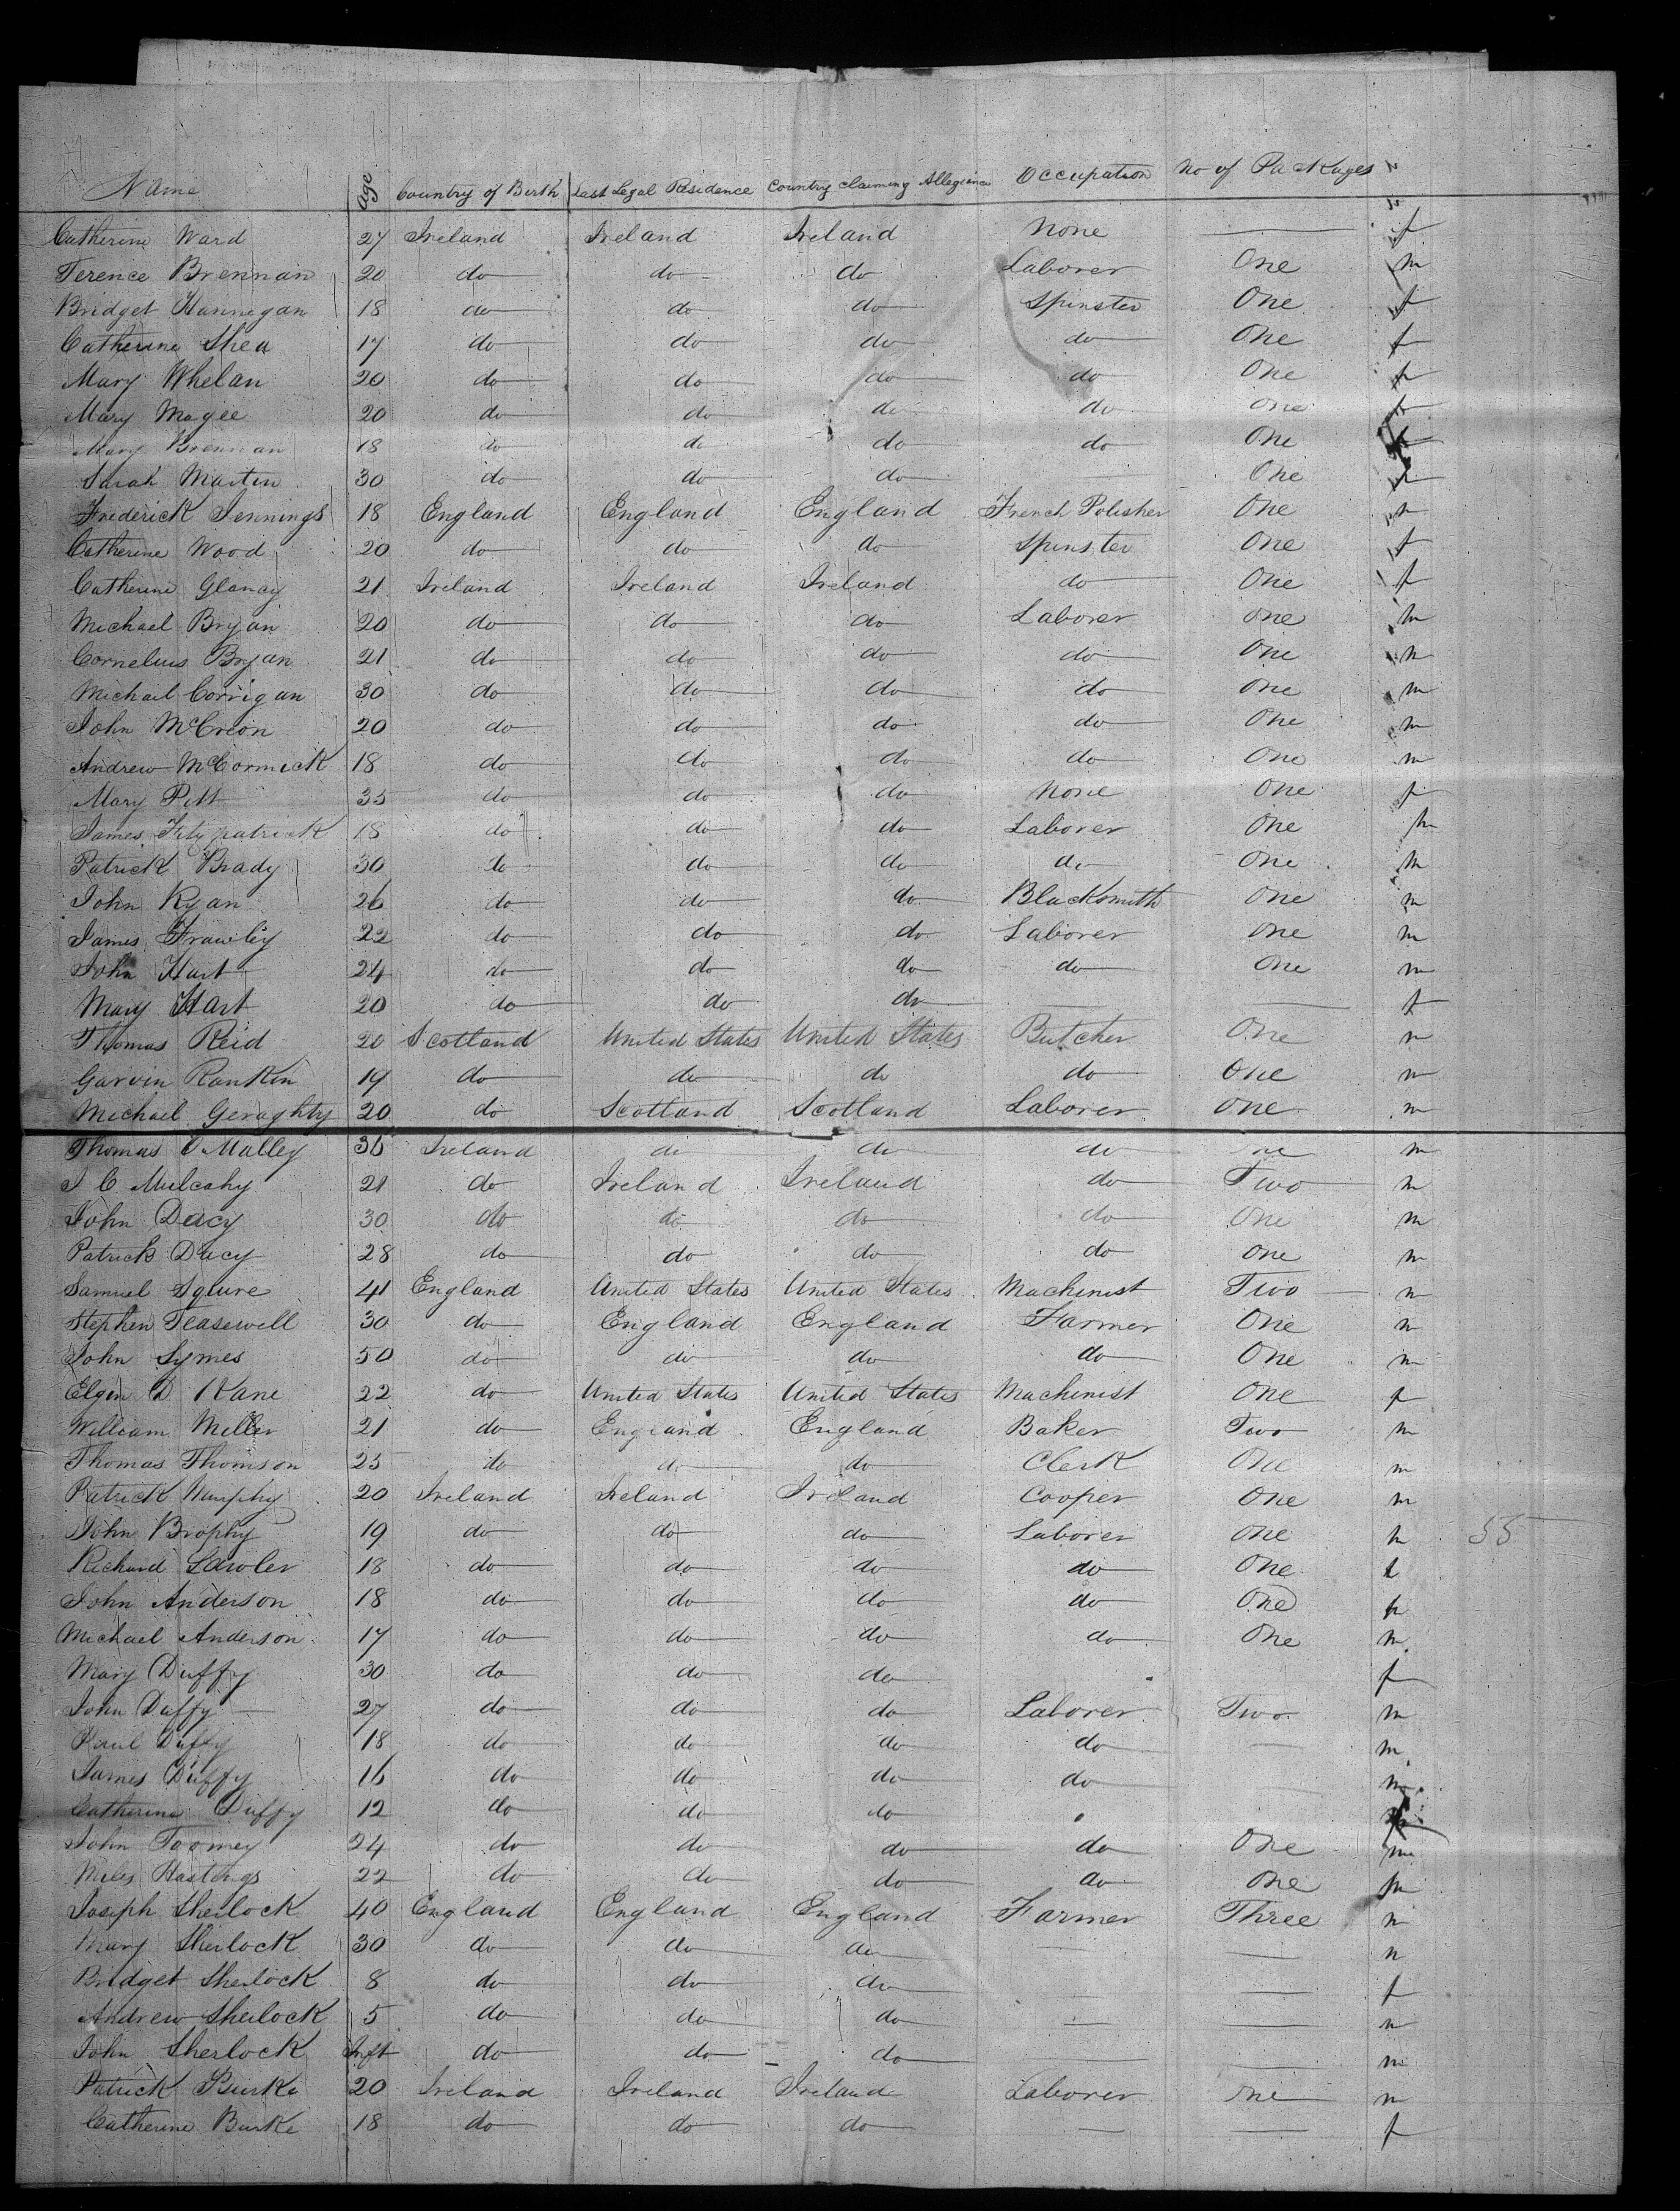 Name Age Country of Birth Last Legal Residence Country claiming Allegiance Occupation No of Packages
Catherine Ward 27 Ireland Ireland Ireland None — f
Terence Brennan 20 do do do Laborer One m
Bridget Hannegan 18 do do do Spinster One f
Catherine Shea 17 do do do do One f
Mary Whelan 20 do do do do One f
Mary Magee 20 do do do do One f
Mary Brennan 18 do do do do One f
Sarah Martin 30 do do do — One f
Frederick Jennings 18 England England England French Polisher One m
Catherine Wood 20 do do do Spinster One f
Catherine Glanay 21 Ireland Ireland Ireland do One f
Michael Bryan 20 do do do Laborer One m
Cornelius Bryan 21 do do do do One m
Michail Corrigan 30 do do do do One m
John McCreon 20 do do do do One m
Andrew McCormick 18 do do do do One m
Mary Pitt 35 do do do None One f
James Fitzpatrick 18 do do do Laborer One m
Patrick Brady 30 do do do do One m
John Ryan 26 do do do Blacksmith One m
James Frawley 22 do do do Laborer One m
John Hart 24 do do do do One m
Mary Hart 20 do do do — — f
Thomas Reid 20 Scotland United States United States Butcher One m
Garvin Rankin 19 do do do do One m
Michael Geraghty 20 do Scotland Scotland Laborer One m
Thomas O Malley 36 Ireland do do do m
J C Mulcahy 21 do Ireland Ireland do Two m
John Dacy 30 do do do do One m
Patrick Dacy 28 do do do do One m
Samuel Sqture 41 England United States United States Machinist Two m
Stephen Teasewell 30 do England England Farmer One m
John Symes 50 do do do do One m
Elgin D Kane 22 do United States United States Machinist One f
William Miller 21 do England England Baker Two m
Thomas Thomson 25 do do do Clerk One m
Patrick Murphy 20 Ireland Ireland Ireland Cooper One m
John Brophy 19 do do do Laborer One m 55
Richard Lawler 18 do do do do One
John Anderson 18 do do do do One
Michael Anderson 17 do do do do One m
Mary Duffy 30 do do do f
John Duffy 27 do do do Laborer Two m
Paul Duffy 18 do do do do — m
James Duffy 16 do do do do m
Catherine Duffy 12 do do do
John Toomey 24 do do do do One m
Miles Hastings 22 do do do do One m
Joseph Sherlock 40 England England England Farmer Three m
Mary Sherlock 30 do do do — — m
Bridget Sherlock 8 do do do — — f
Andrew Sherlock 5 do do do — — m
John Sherlock Inft do do do — — m
Patrick Burke 20 Ireland Ireland Ireland Laborer One m
Catherine Burke 18 do do do — — f